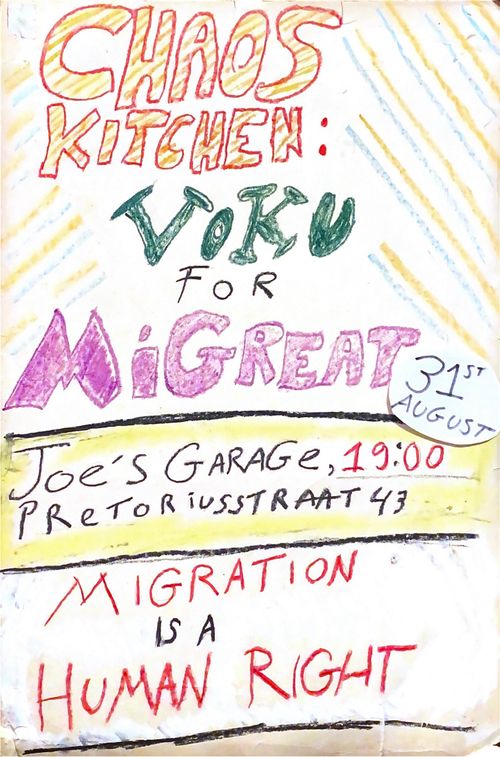 CHAOS
KITCHEN:
VOKU
FOR
MiGREAT
31ST
AUGUST
JOE'S GARAGE, 19:00
PRETORiUSSTRAAT 43
MIGRATION
IS A
HUMAN RIGHT